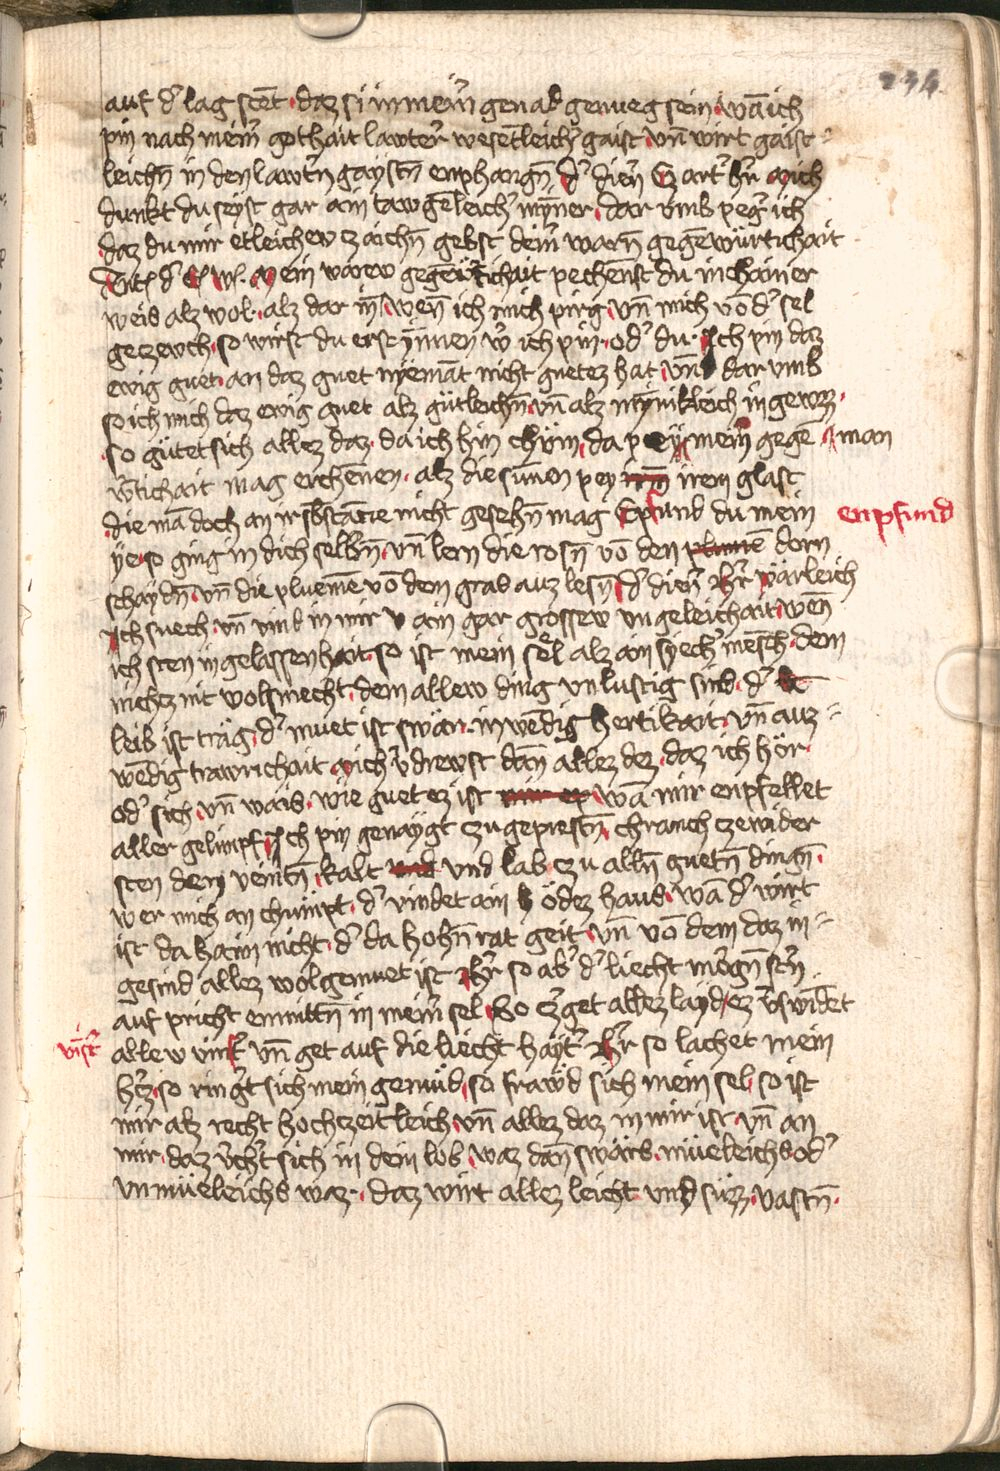 234
auf dʼ lag stet · daz si in meinʼ genad genueg sein · wā ich
pin nach meinʼ gothait lawterʼ wesētleichʼ gaist · vn̄ wirt gaist
leichn̄ in den lawtʼn gaystn̄ enphangn̄ dʼ dienʼ Czartʼ hʼr mich
dunkt du seyst gar ain tawgēleichʼ mȳner · dar vmb pegʼ ich
daz du mir etleichew czaichn̄ gebst deinʼ warn̄ gegēwürtichait
dʼ Mein warew gegēwʼtichait pechenst du in chainer
weis alz wol · alz dar in̄ · wen̄ ich mich pirg · vn̄ mich vō dʼ sel
geczewch · so wirst du erst ynnen wʼ ich pin · odʼ du · Ich pin daz
ewig guet · an daz guet nyemāt nicht guetez hat · vn̄ dar vmb
so ich mich daz ewig guet alz gütleichn̄ · vn̄ alz mynikleich in gewzz ·
so gütet sich allez daz · da ich hin chüm · da pey meinʼ gegē man
wʼtichait mag erchēnen · alz die sunnen pey irem glast
die mā doch an irʼ sbstācie nicht gesehn̄ mag Epfund du mein enpfund
ye · so ging in dich selbn̄ · vn̄ lern die rosn̄ vō den plumē dorn
schaydn̄ · vn̄ die pluemē vō dem gras auz lesn̄ dʼ dienʼ Hʼr wärleich
Ich suech · vn̄ vind in mir v ain gar grossew vngeleichait · wen̄
ich sten in gelassenhait · so ist mein sel alz ain syechʼ mēsch · dem
nichcz nit wolsmecht · dem allew ding vnlustig sind · dʼ
leib ist träg · dʼ muet ist swär · inwēdig hertikait · vn̄ auz
wēdig trawrichait mich vʼdrewst dan̄ allez dez · daz ich hör ·
odʼ sich · vn̄ wais · wie guet ez ist wā mir enpfellet
aller gelimpf · Ich pin genaygt czu gepresstn̄ · chranch czewider
sten dem veintn̄ · kalt vnd lab · czu alln̄ guetn̄ dingn̄ ·
wer mich an chumpt · dʼ vindet ain ödez haus · wā dʼ wirt
ist da haim nicht · dʼ da hohn̄ rat geit · vn̄ vō dem daz in
gesind allez wolgemuet ist Hʼr so abʼ dʼ liecht mʼogn̄ stʼn
auf pricht enmittn̄ in meinʼ sel · So czʼget allez layd · ez vʼswīdet
vinstʼ allew vinst vn̄ get auf die liecht haytʼ Hʼr so lachet mein
hʼcz · so ringʼt sich mein gemüd · so frawd sich mein sel · so ist
mir alz recht hochczeitleich · vn̄ allez daz in mir ist · vn̄ an
mir · daz vʼchʼt sich in dein lob · waz dan̄ swärs · müeleichs odʼ
vnmüeleichs waz · daz wirt allez leicht · vnd süzz · vastn̄ ·